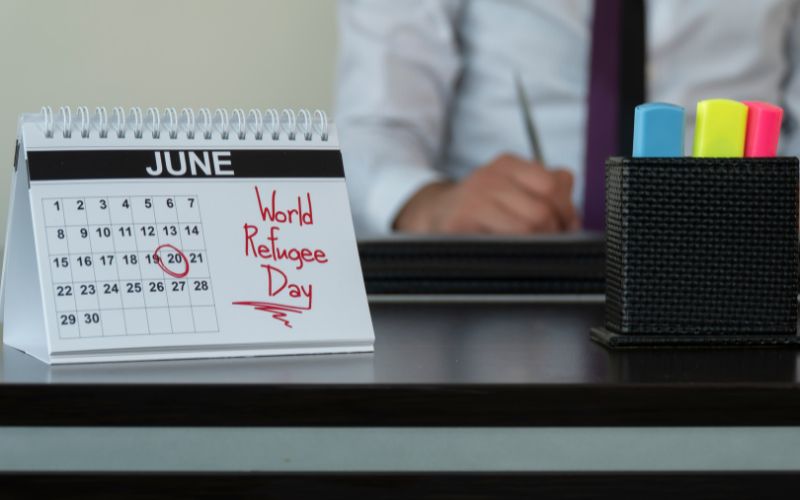 JUNE
1 2 3 4 5 6 7
8 9 10 11 12 13 14
15 16 17 18 19 20 21
22 23 24 25 26 27 28
29 30
World
Refugee
Day